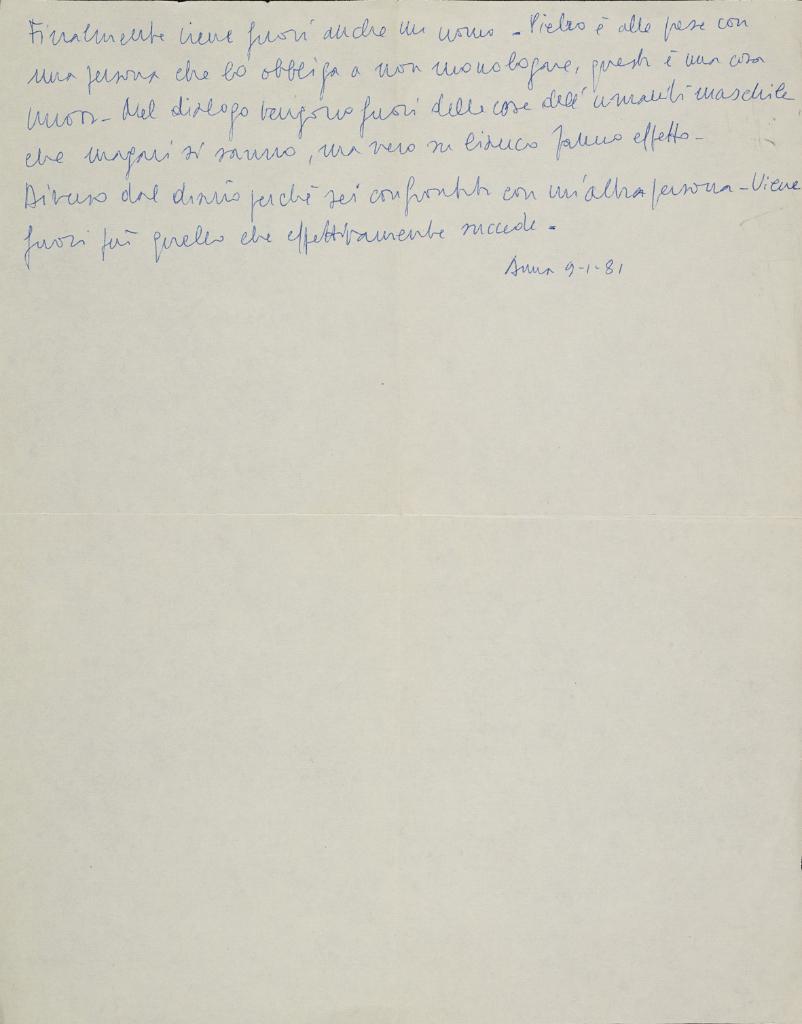 Finalmente viene fuori anche un uomo - Pietro è alle prese con
una persona che lo obbliga a non monologare, questa è una cosa
nuova - Nel dialogo vengono fuori delle cose dell'umanità maschile,
che magari si sanno, ma nero su bianco fanno effetto -
Diverso dal diario perché sei confrontata con un'altra persona - Viene
fuori più quello che effettivamente succede -
Anna 9-1-81